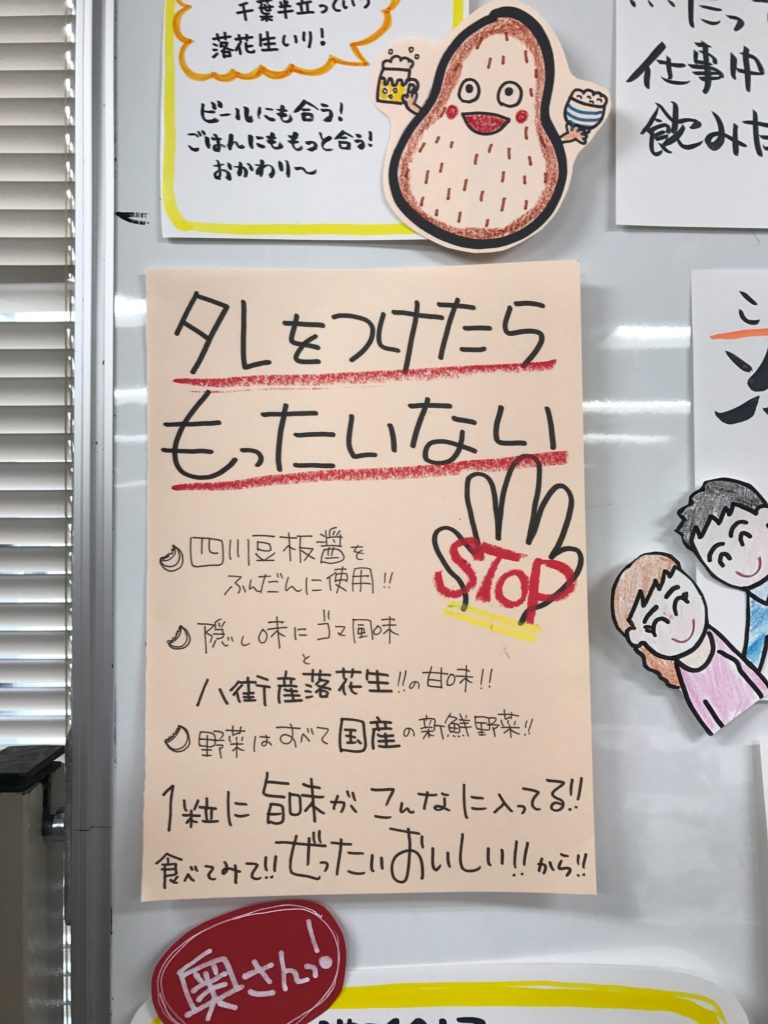 千葉半立っていう
落花生いり!
ビールにも合う!
ごはんにももっと合う!
おかわり〜
仕事中
飲みた
タレをつけたら
もったいない
STOP
四川豆板醤を
ふんだんに使用!!
隠し味にゴマ風味
と
八街産落花生!!の甘味!!
野菜はすべて国産の新鮮野菜!!
1粒に旨味がこんなに入ってる!!
食べてみて!!ぜったいおいしい!!から!!
こ
奥さんっ!